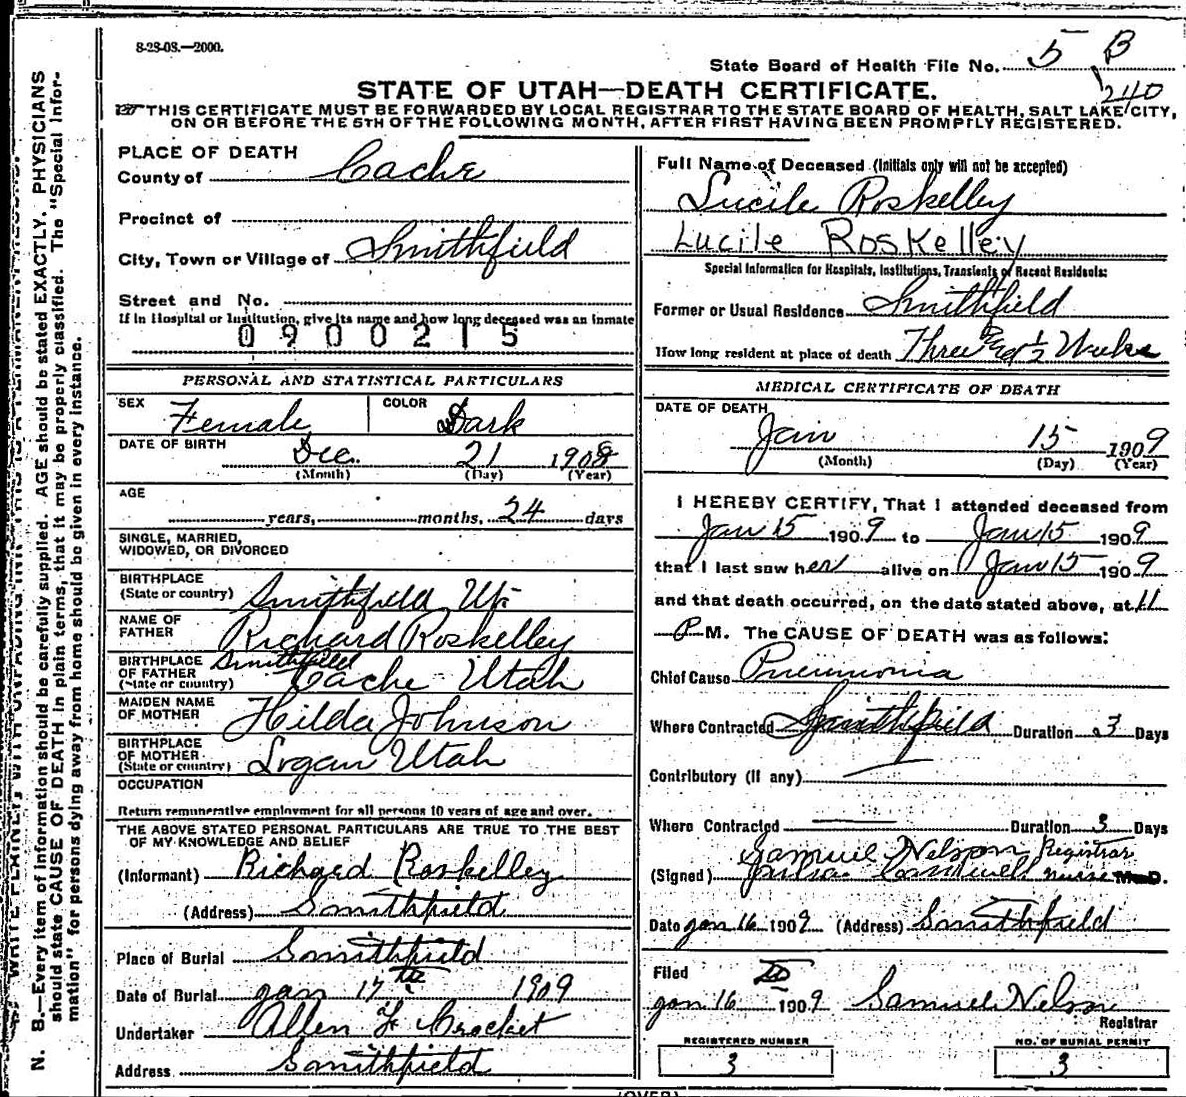 8-28-08.—2000.
State Board of Health File No. 5 B
240
STATE OF UTAH—DEATH CERTIFICATE.
THIS CERTIFICATE MUST BE FORWARDED BY LOCAL REGISTRAR TO THE STATE BOARD OF HEALTH, SALT LAKE CITY,
ON OR BEFORE THE 5TH OF THE FOLLOWING MONTH, AFTER FIRST HAVING BEEN PROMPTLY REGISTERED.
PLACE OF DEATH
County of Cache
Precinct of
City, Town or Village of Smithfield
Street and No.
If in Hospital or Institution, give its name and how long deceased was an inmate
0900215
PERSONAL AND STATISTICAL PARTICULARS
SEX Female COLOR Dark
DATE OF BIRTH Dec. 21 1908
(Month) (Day) (Year)
AGE
years, months, 24 days
SINGLE, MARRIED,
WIDOWED, OR DIVORCED
BIRTHPLACE
(State or country) Smithfield Ut
NAME OF
FATHER Richard Roskelley
BIRTHPLACE
OF FATHER Smithfield
(State or country) Cache Utah
MAIDEN NAME
OF MOTHER Hilda Johnson
BIRTHPLACE
OF MOTHER
(State or country) Logan Utah
OCCUPATION
Return remunerative employment for all persons 10 years of age and over.
THE ABOVE STATED PERSONAL PARTICULARS ARE TRUE TO THE BEST
OF MY KNOWLEDGE AND BELIEF
(Informant) Richard Roskelley
(Address) Smithfield
Place of Burial Smithfield
Date of Burial Jan 17th 1909
Undertaker Allen F Crocket
Address Smithfield
Full Name of Deceased (Initials only will not be accepted)
Lucile Roskelley
Lucile Roskelley
Special Information for Hospitals, Institutions, Transients or Recent Residents:
Former or Usual Residence Smithfield
How long resident at place of death Three and 1/2 Weeks
MEDICAL CERTIFICATE OF DEATH
DATE OF DEATH
Jan 15 1909
(Month) (Day) (Year)
I HEREBY CERTIFY, That I attended deceased from
Jan 15 1909 to Jan 15 1909
that I last saw her alive on Jan 15 1909
and that death occurred, on the date stated above, at 11
P M. The CAUSE OF DEATH was as follows:
Chief Cause Pneumonia
Where Contracted Smithfield Duration 3 Days
Contributory (if any)
Where Contracted Duration 3 Days
Samuel Nelson Registrar
(Signed) nurse M.D.
Date Jan 16 1909 (Address) Smithfield
Filed
Jan 16 1909 Samuel Nelson
Registrar
REGISTERED NUMBER
3
NO. OF BURIAL PERMIT
3
(OVER)
N. B.—Every item of information should be carefully supplied. AGE should be stated EXACTLY. PHYSICIANS
should state CAUSE OF DEATH in plain terms, that it may be properly classified. The "Special Infor-
mation" for persons dying away from home should be given in every instance.